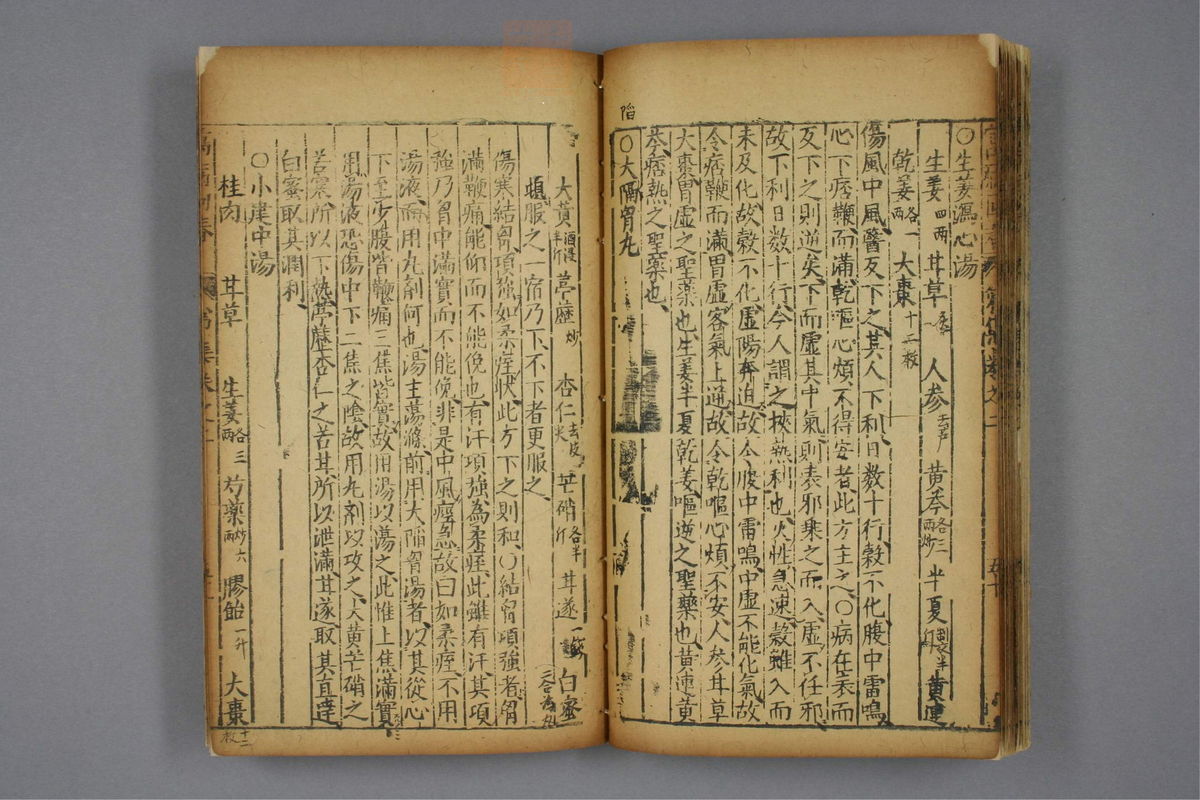 ○生姜瀉心湯
生姜四兩 甘草炙 人參去芦 黃芩各三兩炒 半夏製半斤 黃連
乾姜各一兩 大棗十二枚
傷風中風醫反下之其人下利日数十行穀不化腹中雷鳴
心下痞鞕而滿乾嘔心煩不得安者此方主之○病在表而
反下之則逆矣下而虛其中氣則表邪乘之而入虛不任邪
故下利日数十行今人謂之挾熱利也火性急速穀雖入而
未及化故穀不化虛陽奔迫故令腹中雷鳴中虛不能化氣故
令痞鞕而滿胃虛客氣上逆故令乾嘔心煩不安人參甘草
大棗胃虛之聖藥也生姜半夏乾姜嘔逆之聖藥也黃連黃
芩痞熱之聖藥也
陷
○大陷胷丸
大黃酒浸半斤 葶藶炒 杏仁去皮尖 芒硝各半斤 甘遂一錢 白蜜二合為丸
頓服之一宿乃下不下者更服之
傷寒結胷項強如柔痓狀此方下之則和○結胷項強者胷
滿鞕痛能仰而不能俛也有汗項強為柔痓此雖有汗其項
強乃胷中滿實而不能俛非是中風痙急故曰如柔痓不用
湯液而用丸劑何也湯主蕩滌前用大陷胷湯者以其從心
下至少腹皆鞕痛三焦皆實故用湯以蕩之此惟上焦滿實
用湯液恐傷中下二焦之陰故用丸劑以攻之大黃芒硝之
苦寒所以下熱葶藶杏仁之苦甘所以泄滿甘遂取其直達
白蜜取其潤利
○小建中湯
桂肉 甘草 生姜各三兩 芍藥炒六兩 膠飴一升 大棗十二枚